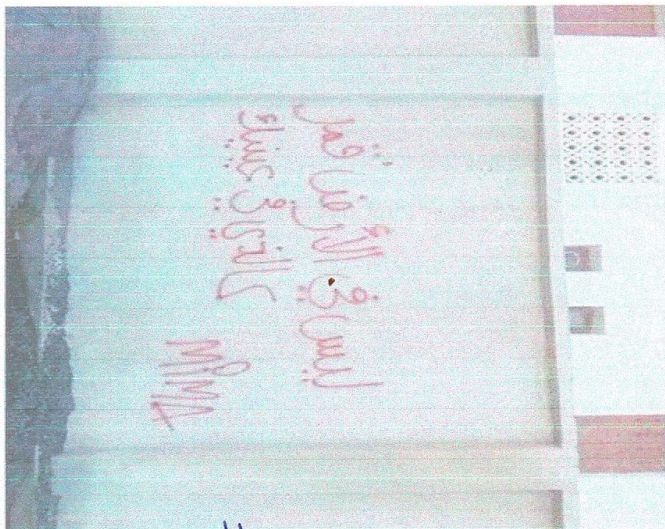 ليس في الأرض قمر
كالذي في عينيك